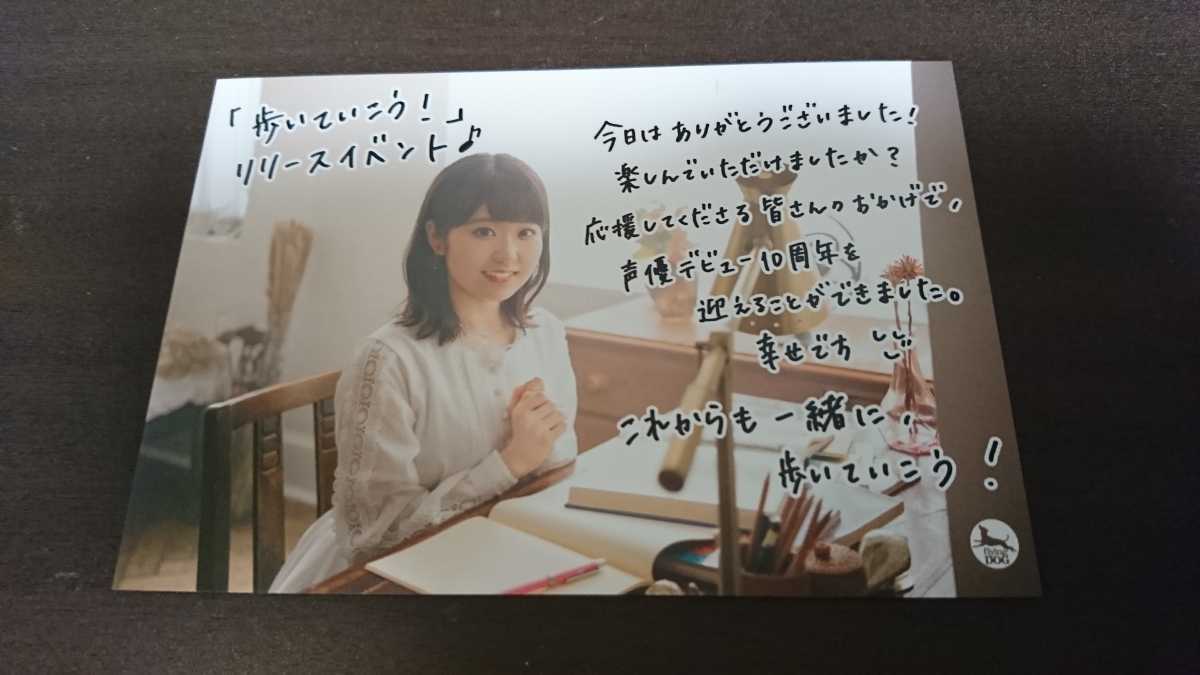 「歩いていこう！」
リリースイベント♪
今日は ありがとうございました！
楽しんでいただけましたか？
応援してくださる 皆さんの おかげで、
声優デビュー10周年を
迎えることができました。
幸せです
これからも 一緒に、
歩いていこう！
flying
DOG